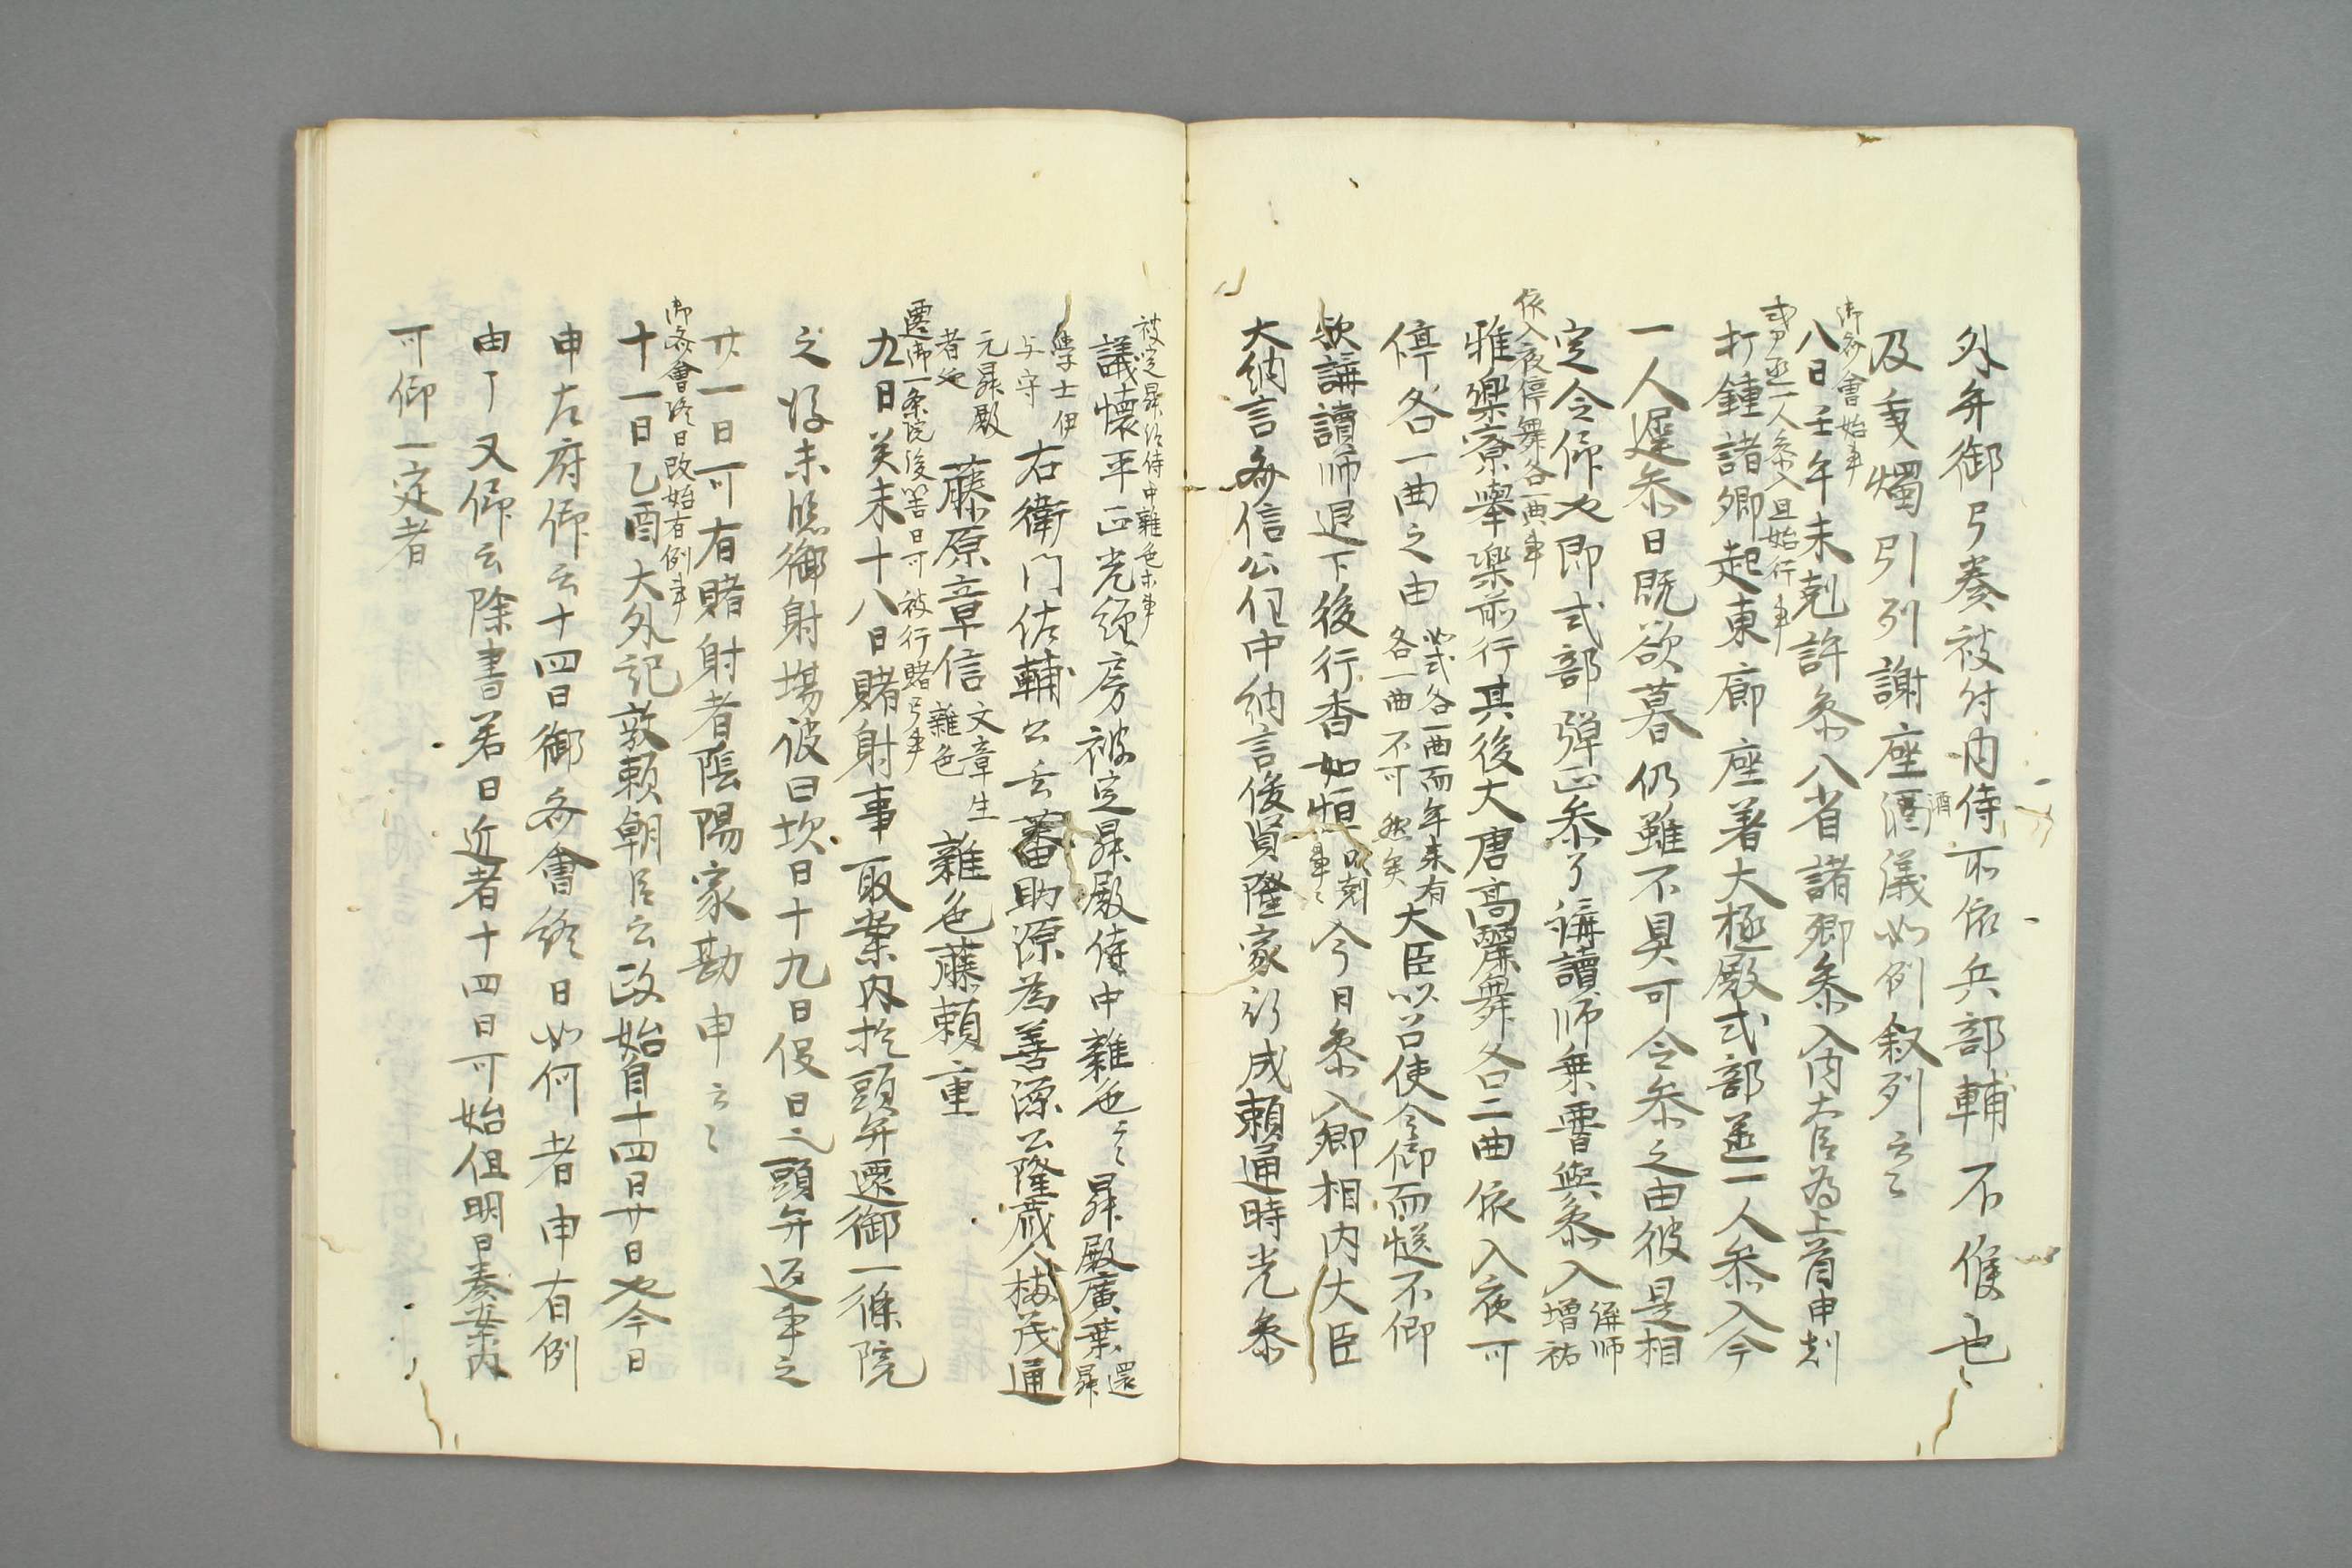 外弁御弓奏被付内侍所依兵部輔不候也
及秉燭引列謝座酒酒儀如例叙列云々
御斎會始事
八日壬午未剋許参八省諸卿参入内大臣為上首申剋
式部丞一人参入且始行事
打鍾諸卿起東廊座着大極殿式部丞一人参入今
一人遅参日既欲暮仍雖不具可令参之由彼是相
定令仰也即式部弾正参了講讀師乗輿参入講師増祐
依入夜停舞各一曲事
雅樂寮挙楽前行其後大唐高麗舞各二曲依入夜可
停各一曲之由必式各一曲而年来有各一曲不可然矣大臣以召使令仰而慥不仰
歟講讀師退下後行香如恒事了今日参入卿相内大臣
大納言斉信公任中納言俊賢隆家行成頼通時光参
被定昇殿侍中雑色等事
議懐平正光経房被定昇殿侍中雑色云々昇殿廣業還昇
学士伊与守右衛門佐輔公玄蕃助源為善源公隆蔵人橘茂通
元昇殿者也藤原章信文章生雑色雑色藤頼重
還御一条院後以吉日可被行賭弓事
九日癸未十八日賭射事取案内於頭弁還御一條院
之後未臨御射場彼日坎日十九日假日也頭弁返事之
廿一日可有賭射者陰陽家勘申云々
御斎會終日政始有例事
十一日乙酉大外記敦頼朝臣云政始自十四日廿日也今日
申左府仰云十四日御斎會終日如何者申有例
由了又仰云除書若日近者十四日可始但明日奏案内
可仰一定者